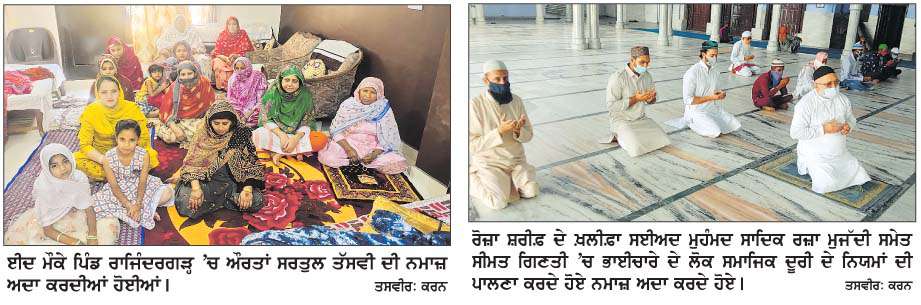 ਈਦ ਮੌਕੇ ਪਿੰਡ ਰਾਜਿੰਦਰਗੜ੍ਹ 'ਚ ਔਰਤਾਂ ਸਰਤੁਲ ਤੱਸਵੀ ਦੀ ਨਮਾਜ਼
ਅਦਾ ਕਰਦੀਆਂ ਹੋਈਆਂ।
ਤਸਵੀਰ: ਕਰਨ
ਰੋਜ਼ਾ ਸ਼ਰੀਫ਼ ਦੇ ਖ਼ਲੀਫ਼ਾ ਸਈਅਦ ਮੁਹੰਮਦ ਸਾਦਿਕ ਰਜ਼ਾ ਮੁਜੱਦੀ ਸਮੇਤ
ਸੀਮਤ ਗਿਣਤੀ 'ਚ ਭਾਈਚਾਰੇ ਦੇ ਲੋਕ ਸਮਾਜਿਕ ਦੂਰੀ ਦੇ ਨਿਯਮਾਂ ਦੀ
ਪਾਲਣਾ ਕਰਦੇ ਹੋਏ ਨਮਾਜ਼ ਅਦਾ ਕਰਦੇ ਹੋਏ।
ਤਸਵੀਰ: ਕਰਨ